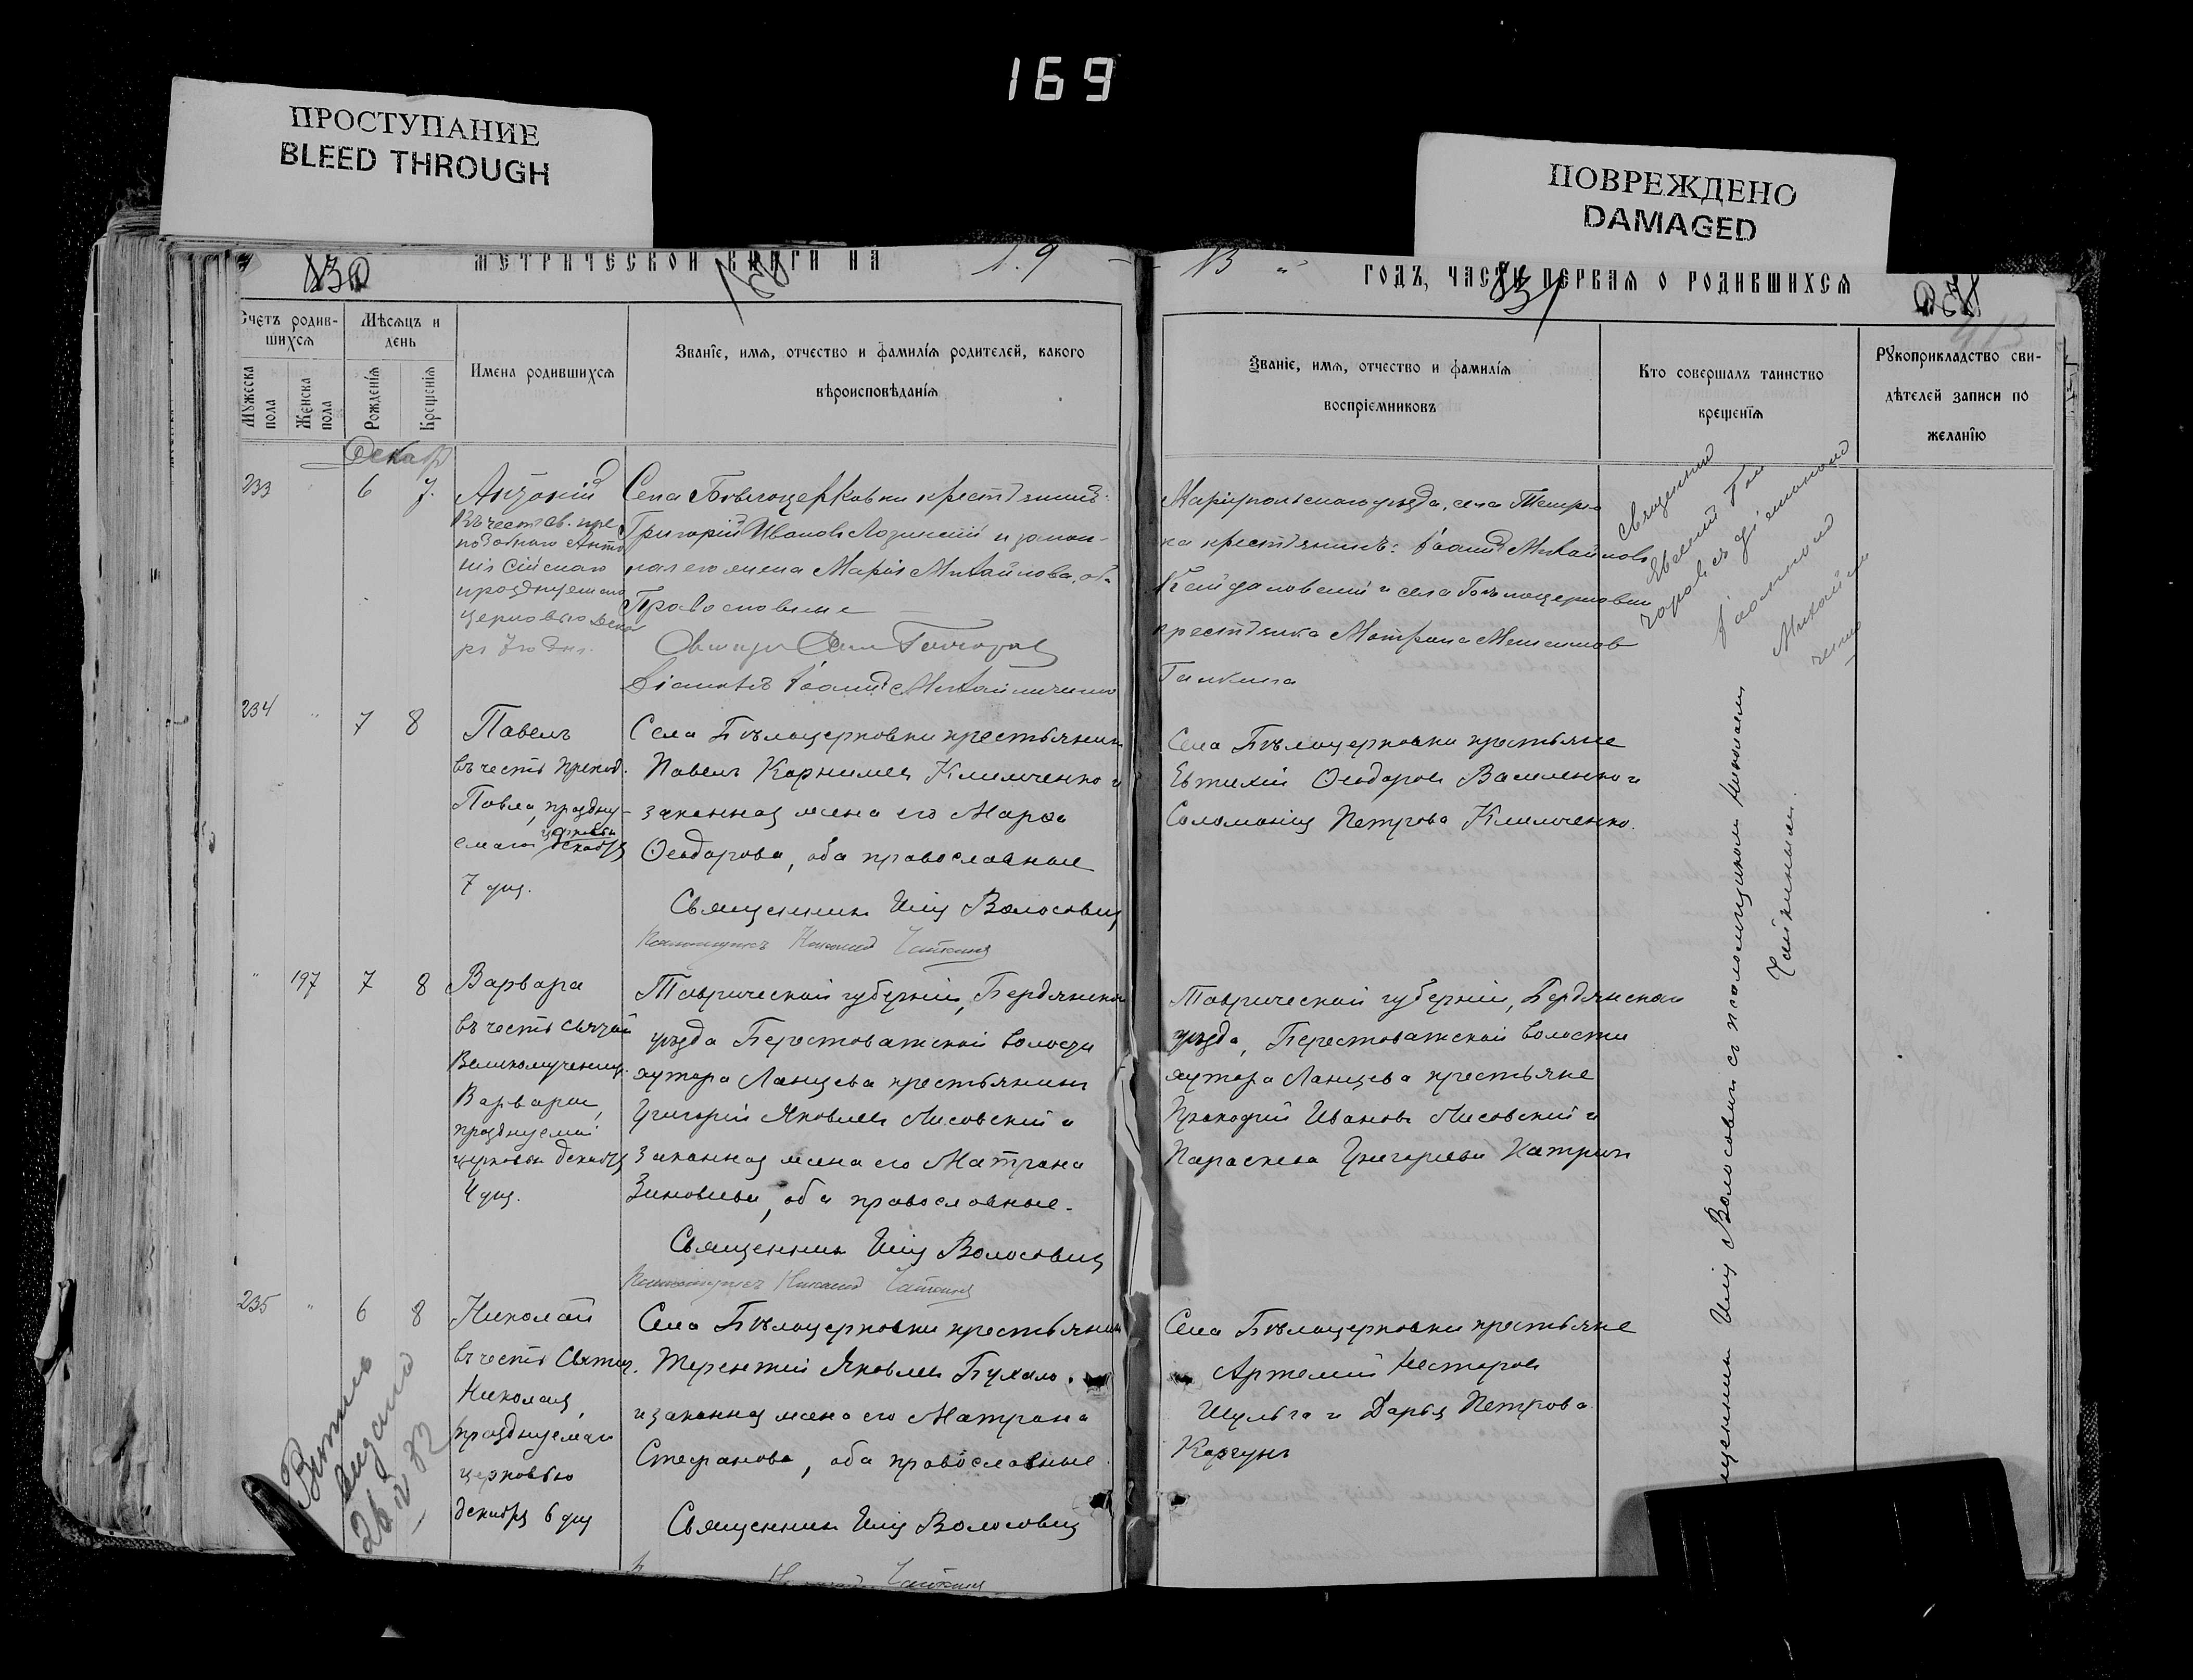 169
ПРОСТУПАНИЕ
BLEED THROUGH
ПОВРЕЖДЕНО
DAMAGED
МЕТРИЧЕСКОЙ КНИГИ НА 19
13 ГОДЪ, ЧАСТЬ ПЕРВАЯ О РОДИВШИХСЯ
Счетъ родив-
шихся
Мужеска пола
Женска пола
Мѣсяцъ и
день
Рожденія
Крещенія
Имена родившихся
Званіе, имя, отчество и фамилія родителей, какого
вѣроисповѣданія
Званіе, имя, отчество и фамилія
воспріемниковъ
Кто совершалъ таинство
крещенія
Рукоприкладство сви-
дѣтелей записи по
желанію
Декабр
233
6 7.
Антоній
въ честь св. пре
подобнаго Анто
нія Сійскаго
празднуемаго
церковью Дека
ря 7го дня.
Села Бѣлоцерковки крестьянинъ:
Григорій Ивановъ Лозинскій и закон-
ная его жена Марія Михайлова, оба
Православные
Діаконъ Іоаннъ Михайличенко
Маріупольскаго уѣзда, села
крестьянинъ: Іоаннъ Михайловъ
и села Бѣлоцерковки
крестьянка Матрона
234 "
7 8
Павелъ
въ честь препод.
Павла, праздну-
емаго церковью декабря
7 дня.
Села Бѣлоцерковки крестьянинъ
Павелъ Корнилиев Климченко и
законная жена его Марѳа
Ѳеодорова, оба православные
Священникъ Илія Волосовичъ
Псаломщикъ Николай Чайкинъ
Села Бѣлоцерковки крестьяне
Евтихій Ѳеодоровъ Василенко и
Соломонія Петрова Климченко.
" 197
7 8
Варвара
въ честь святой
Великомученицы
Варвары,
празднуемой
церковью декабря
4 дня.
Таврической губерніи, Бердянскаго
уѣзда Берестоватской волости
хутора Ланцева крестьянинъ
Григорій Яковлевъ Лисовскій и
законная жена его Матрона
Зиновьева, оба православные.
Священникъ Илія Волосовичъ
Псаломщикъ Николай Чайкинъ
Таврической губерніи, Бердянскаго
уѣзда, Берестоватской волости
хутора Ланцева крестьяне
Прокофій Ивановъ Лисовскій и
Параскева Григорьева Катричъ
235 "
6 8
Николай
въ честь Святит.
Николая,
празднуемаго
церковью
декабря 6 дня
Села Бѣлоцерковки крестьянинъ
Терентій Яковлевъ Бухало
и законная жена его Матрона
Стефанова, оба православные.
Священникъ Илія Волосовичъ
Чайкинъ
Села Бѣлоцерковки крестьяне
Артемій Несторовъ
Шульга и Дарья Петрова
Коргунъ
Священникъ
Евгеній Гон
чаровъ съ діакономъ
Іоанномъ
Михайли
ченко
щенникъ Илія Волосовичъ съ псаломщикомъ Николаемъ
Чайкинымъ.